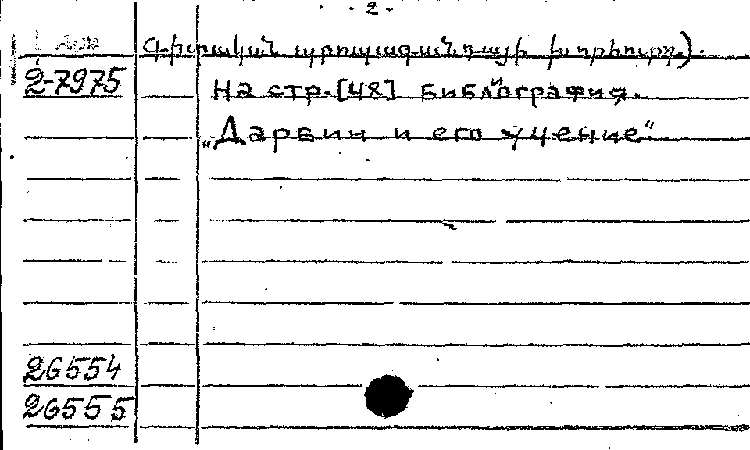 - 2 -
Գիտական պրոպագանդայի խորհուրդ.).
2-7975
На стр. [48] библиография.
„Дарвин и его учение“
26554
26555